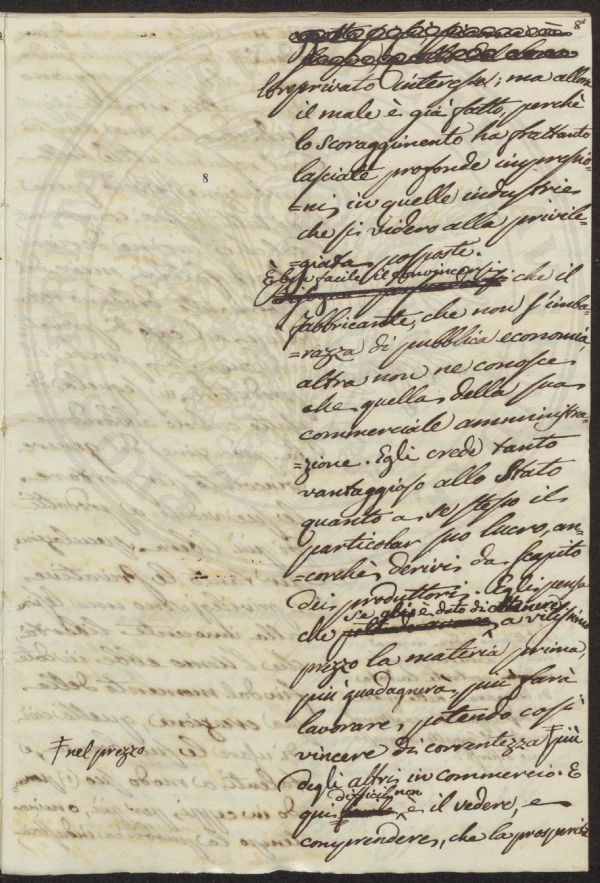 8
8
loro privato interesse; ma allora
il male è già fatto, perchè
lo scoraggimento ha frattanto
lasciate profonde impressio-
=ni, in quelle industrie
che si videro alla privile-
=giada posposte.
È ben facile il convincersi, che il
fabbricante, che non s'imba-
=razza di pubblica economia,
altra non ne conosce
che quella della sua
commerciale amministra-
=zione. Egli crede tanto
vantaggioso allo Stato
quanto a se stesso il
particolar suo lucro, an-
=corchè derivi da scapito
dei produttori. Egli pensa
che se gli è dato di ottenere a vilissimo
prezzo la materia prima,
più guadagnerà, più farà
lavorare, potendo così
vincere di correntezza più
nel prezzo
degli altri in commercio. E
qui difficil non è il vedere, e
comprendere, che la prosperità